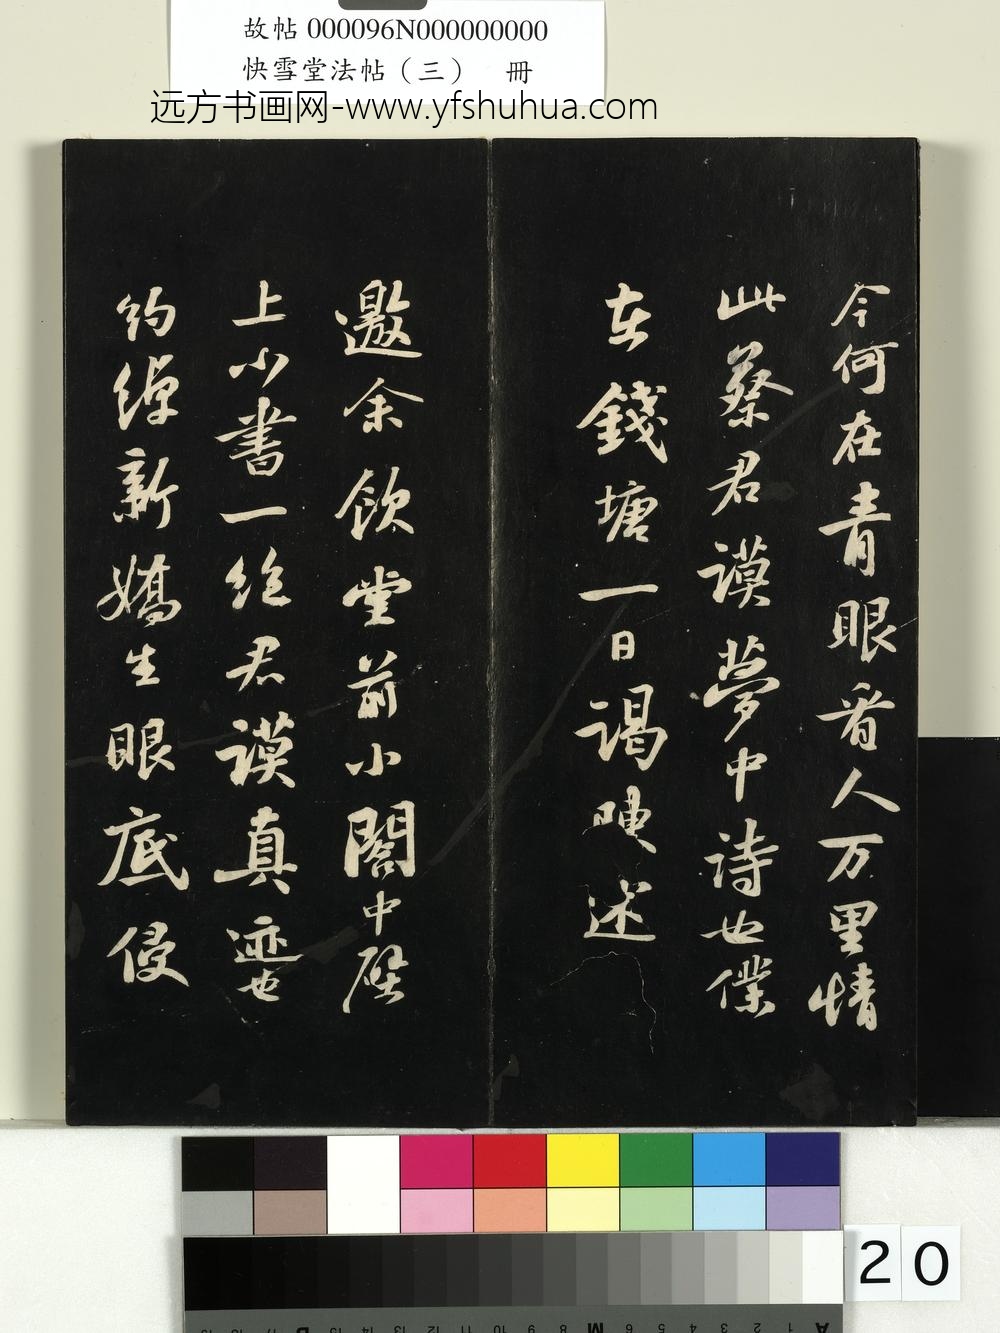 故帖 000096N000000000
快雪堂法帖（三） 冊
远方书画网-www.yfshuhua.com
今何在青眼看人万里情
此蔡君謨夢中詩也僕
在錢塘一日謁陳述
邀余飲堂前小閣中壁
上小書一絕君謨真迹也
約綽新嬌生眼底侵
20